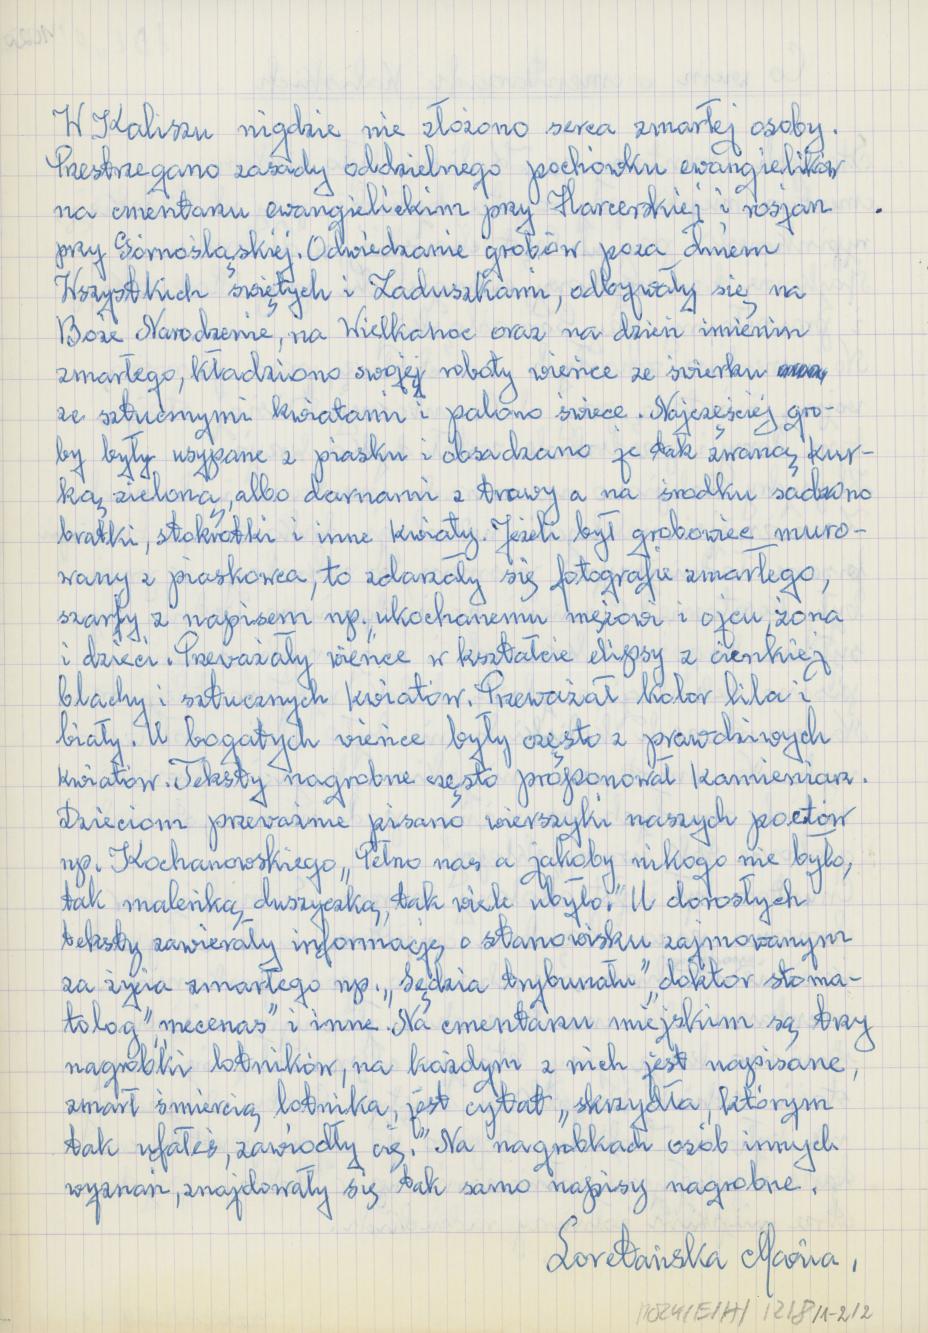 W Kaliszu nigdzie nie złożono serca zmarłej osoby.
Przestrzegano zasady oddzielnego pochówku ewangielików
na cmentarzu ewangielickim przy Harcerskiej i rosjan
przy Górnośląskiej. Odwiedzanie grobów poza dniem
Wszystkich świętych i Zaduszkami, odbywały się na
Boże Narodzenie, na Wielkanoc oraz na dzień imienin
zmarłego, kładziono swojej roboty wieńce ze świerku
ze sztucznymi kwiatami i palono świece. Najczęściej gro-
by były usypane z piasku i obsadzano je tak zwaną kur-
ką zieloną, albo darnami z trawy a na środku sadzono
bratki, stokrotki i inne kwiaty. Jeżeli był grobowiec muro-
wany z piaskowca, to zdarzały się fotografie zmarłego,
szarfy z napisem np. "ukochanemu mężowi i ojcu, żona
i dzieci. Przeważały wieńce w kształcie elipsy z cienkiej
blachy i sztucznych kwiatów. Przeważał kolor lila i
biały. U bogatych wieńce były często z prawdziwych
kwiatów. Teksty nagrobne często proponował kamieniarz.
Dzieciom przeważnie pisano wierszyki naszych poetów
np. Kochanowskiego „Pełno nas a jakoby nikogo nie było,
tak maleńką duszyczką, tak wiele ubyło." U dorosłych
teksty zawierały informację o stanowisku zajmowanym
za życia zmarłego np. „Sędzia trybunału" „doktor stoma-
tolog" „mecenas" i inne. Na cmentarzu miejskim są trzy
nagrobki lotników, na każdym z nich jest napisane,
zmarł śmiercią lotnika, jest cytat „skrzydła, którym
tak ufałeś, zawiodły cię." Na nagrobkach osób innych
wyznań, znajdowały się tak samo napisy nagrobne.
Loretańska Maria.